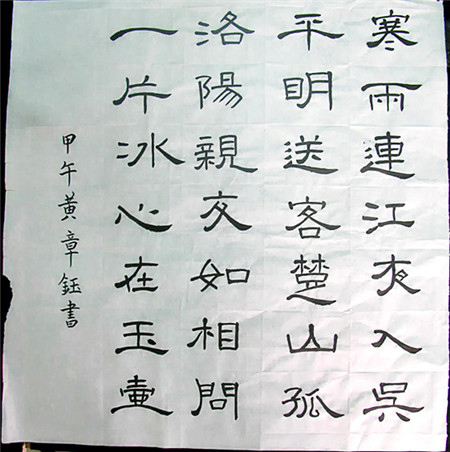 寒雨連江夜入吳
平明送客楚山孤
洛陽親友如相問
一片冰心在玉壷
甲午黄章鈺書